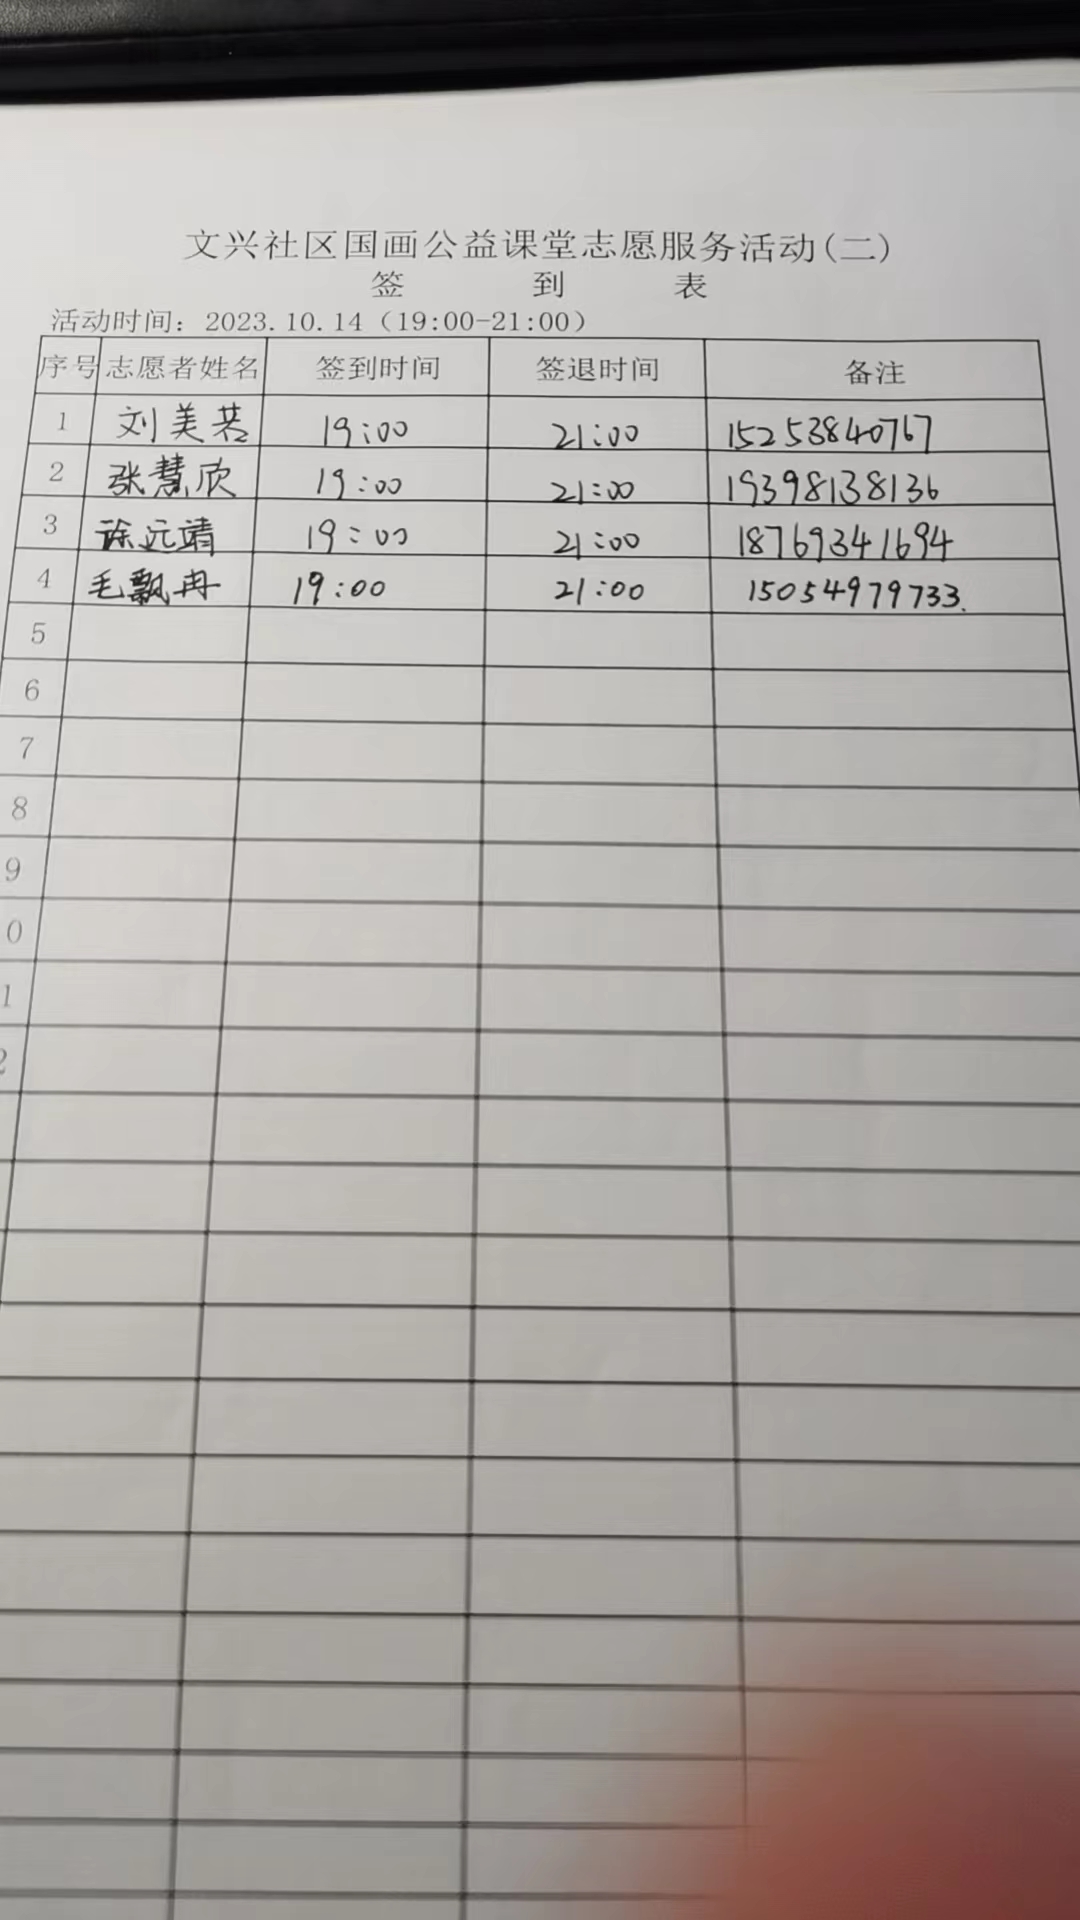 文兴社区国画公益课堂志愿服务活动(二)
签 到 表
活动时间: 2023.10.14 (19:00-21:00)
序号 志愿者姓名 签到时间 签退时间 备注
1 刘美若 19:00 21:00 15253840767
2 张慧欣 19:00 21:00 19398138136
3 徐远靖 19:00 21:00 18769341694
4 毛飘冉 19:00 21:00 15054979733.
5
6
7
8
9
0
1
2